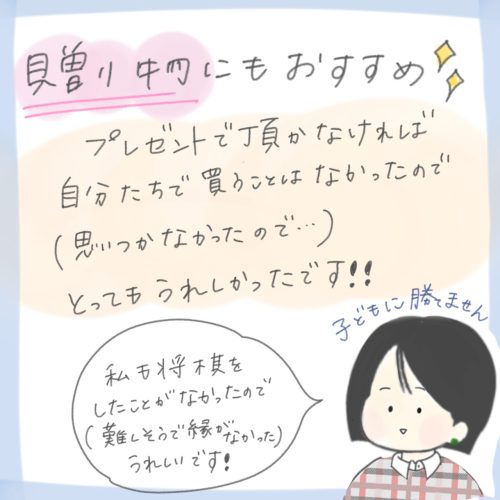 贈り物にもおすすめ
プレゼントで頂かなければ
自分たちで買うことはなかったので
(思いつかなかったので…)
とってもうれしかったです!!
子どもに勝てません
私も将棋を
したことがなかったので
(難しそうで縁がなかった)
うれしいです!